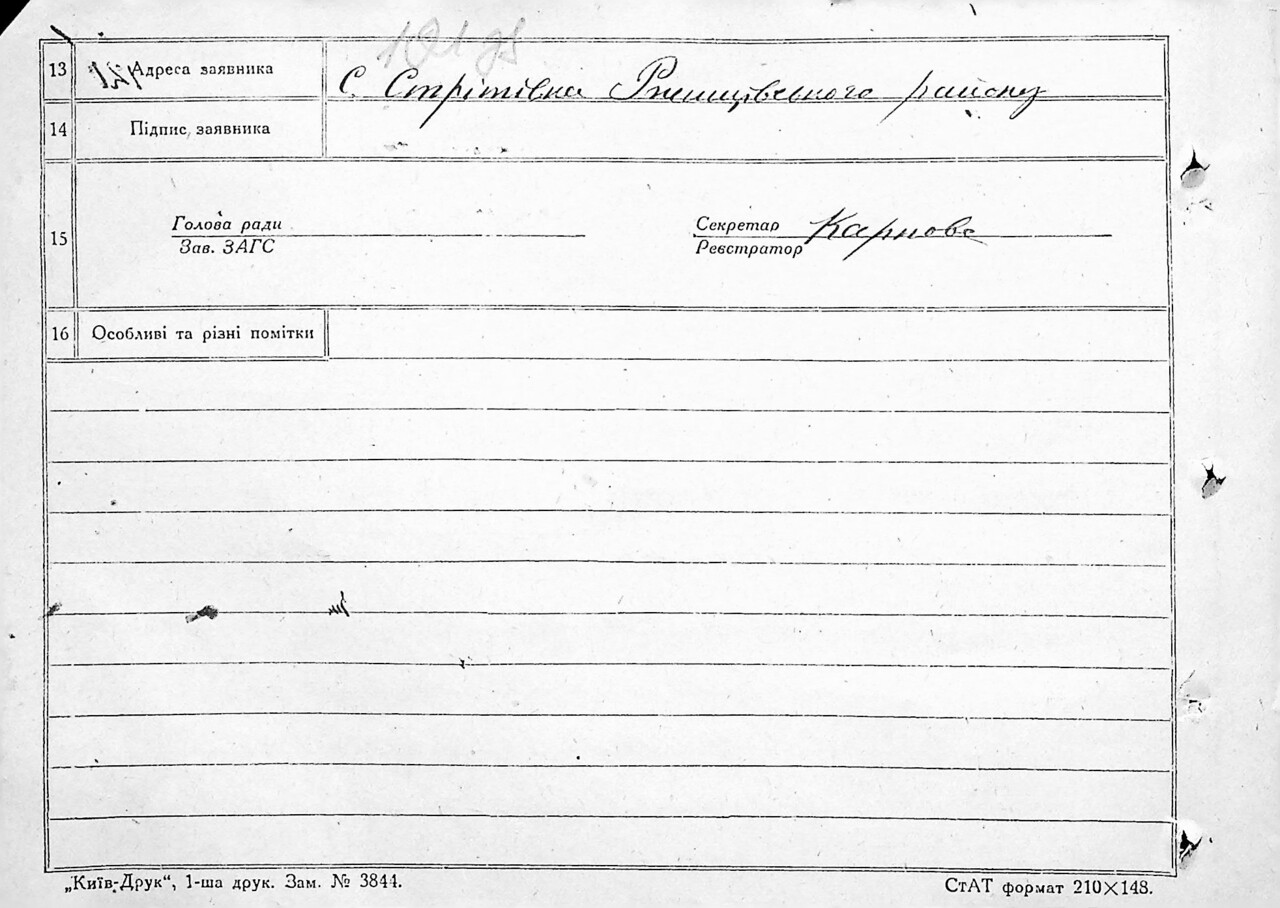 13 Адреса заявника С. Стрітівка Ржищівського району
14 Підпис заявника
15 Голова ради
Зав. ЗАГС
Секретар Карпова
Реєстратор
16 Особливі та різні помітки
„Київ-Друк“, 1-ша друк. Зам. № 3844.
СтАТ формат 210×148.